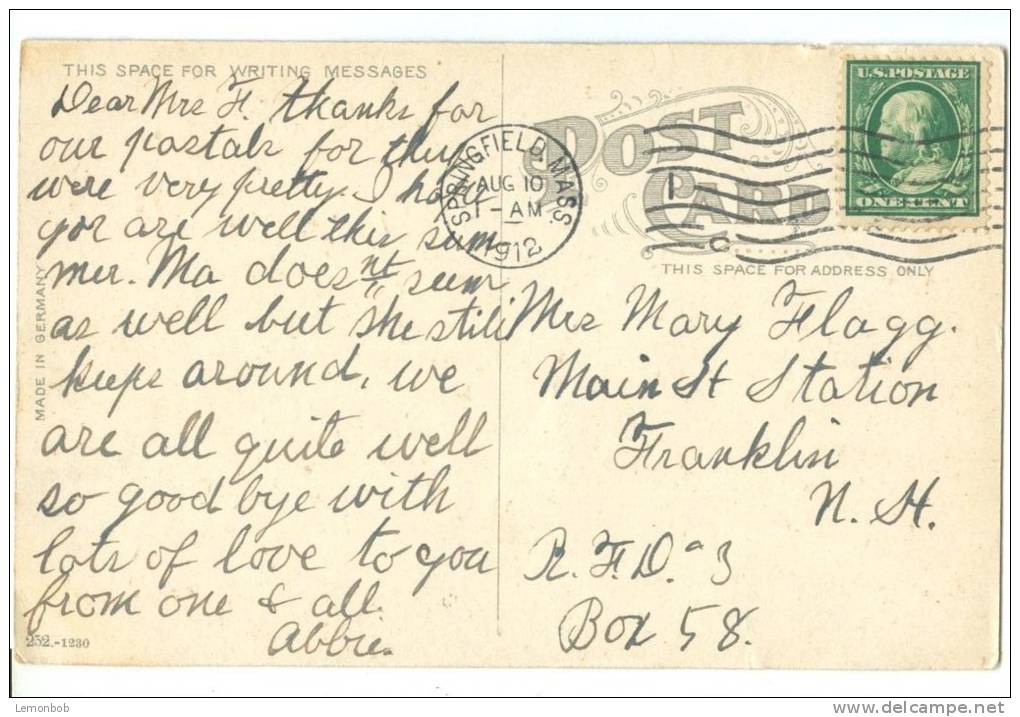 THIS SPACE FOR WRITING MESSAGES
Dear Mrs F. thanks for
our postals for they
were very pretty. I hope
you are well this sum
mer. Ma does nt seem
as well but she still
keeps around, we
are all quite well
so good bye with
lots of love to you
from one & all.
Abbie.
MADE IN GERMANY
252.-1230
POST
CARD
SPRINGFIELD, MASS.
AUG 10
1-AM
1912
1
C
U.S. POSTAGE
ONE CENT
THIS SPACE FOR ADDRESS ONLY
Mrs Mary Flagg.
Main St Station
Franklin
N. H.
R. F. D. 3
Box 58.
Lemonbob
www.delcampe.net